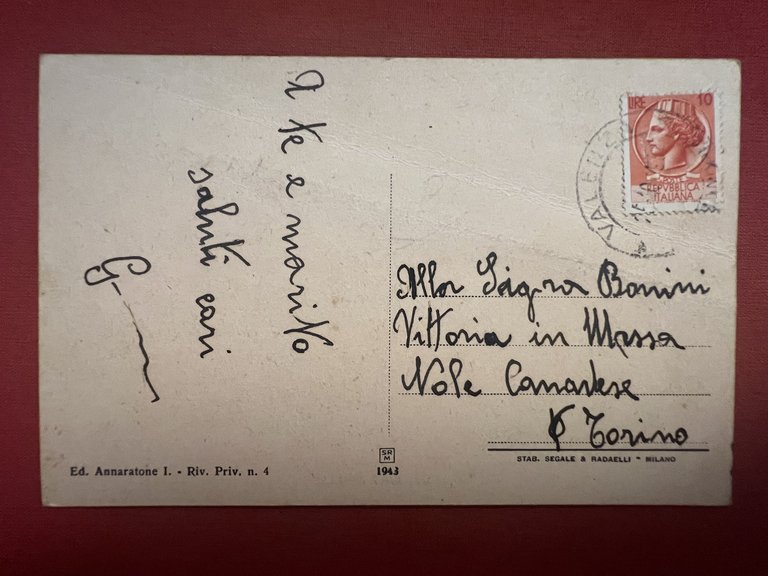 A te e marito
saluti cari
LIRE 10
POSTE
REPVBBLICA
ITALIANA
VALENZ
Alla Sig.ra Bonini
Vittoria in Massa
Nole Canavese
Torino
Ed. Annaratone I. - Riv. Priv. n. 4
SRM
1943
STAB. SEGALE & RADAELLI - MILANO